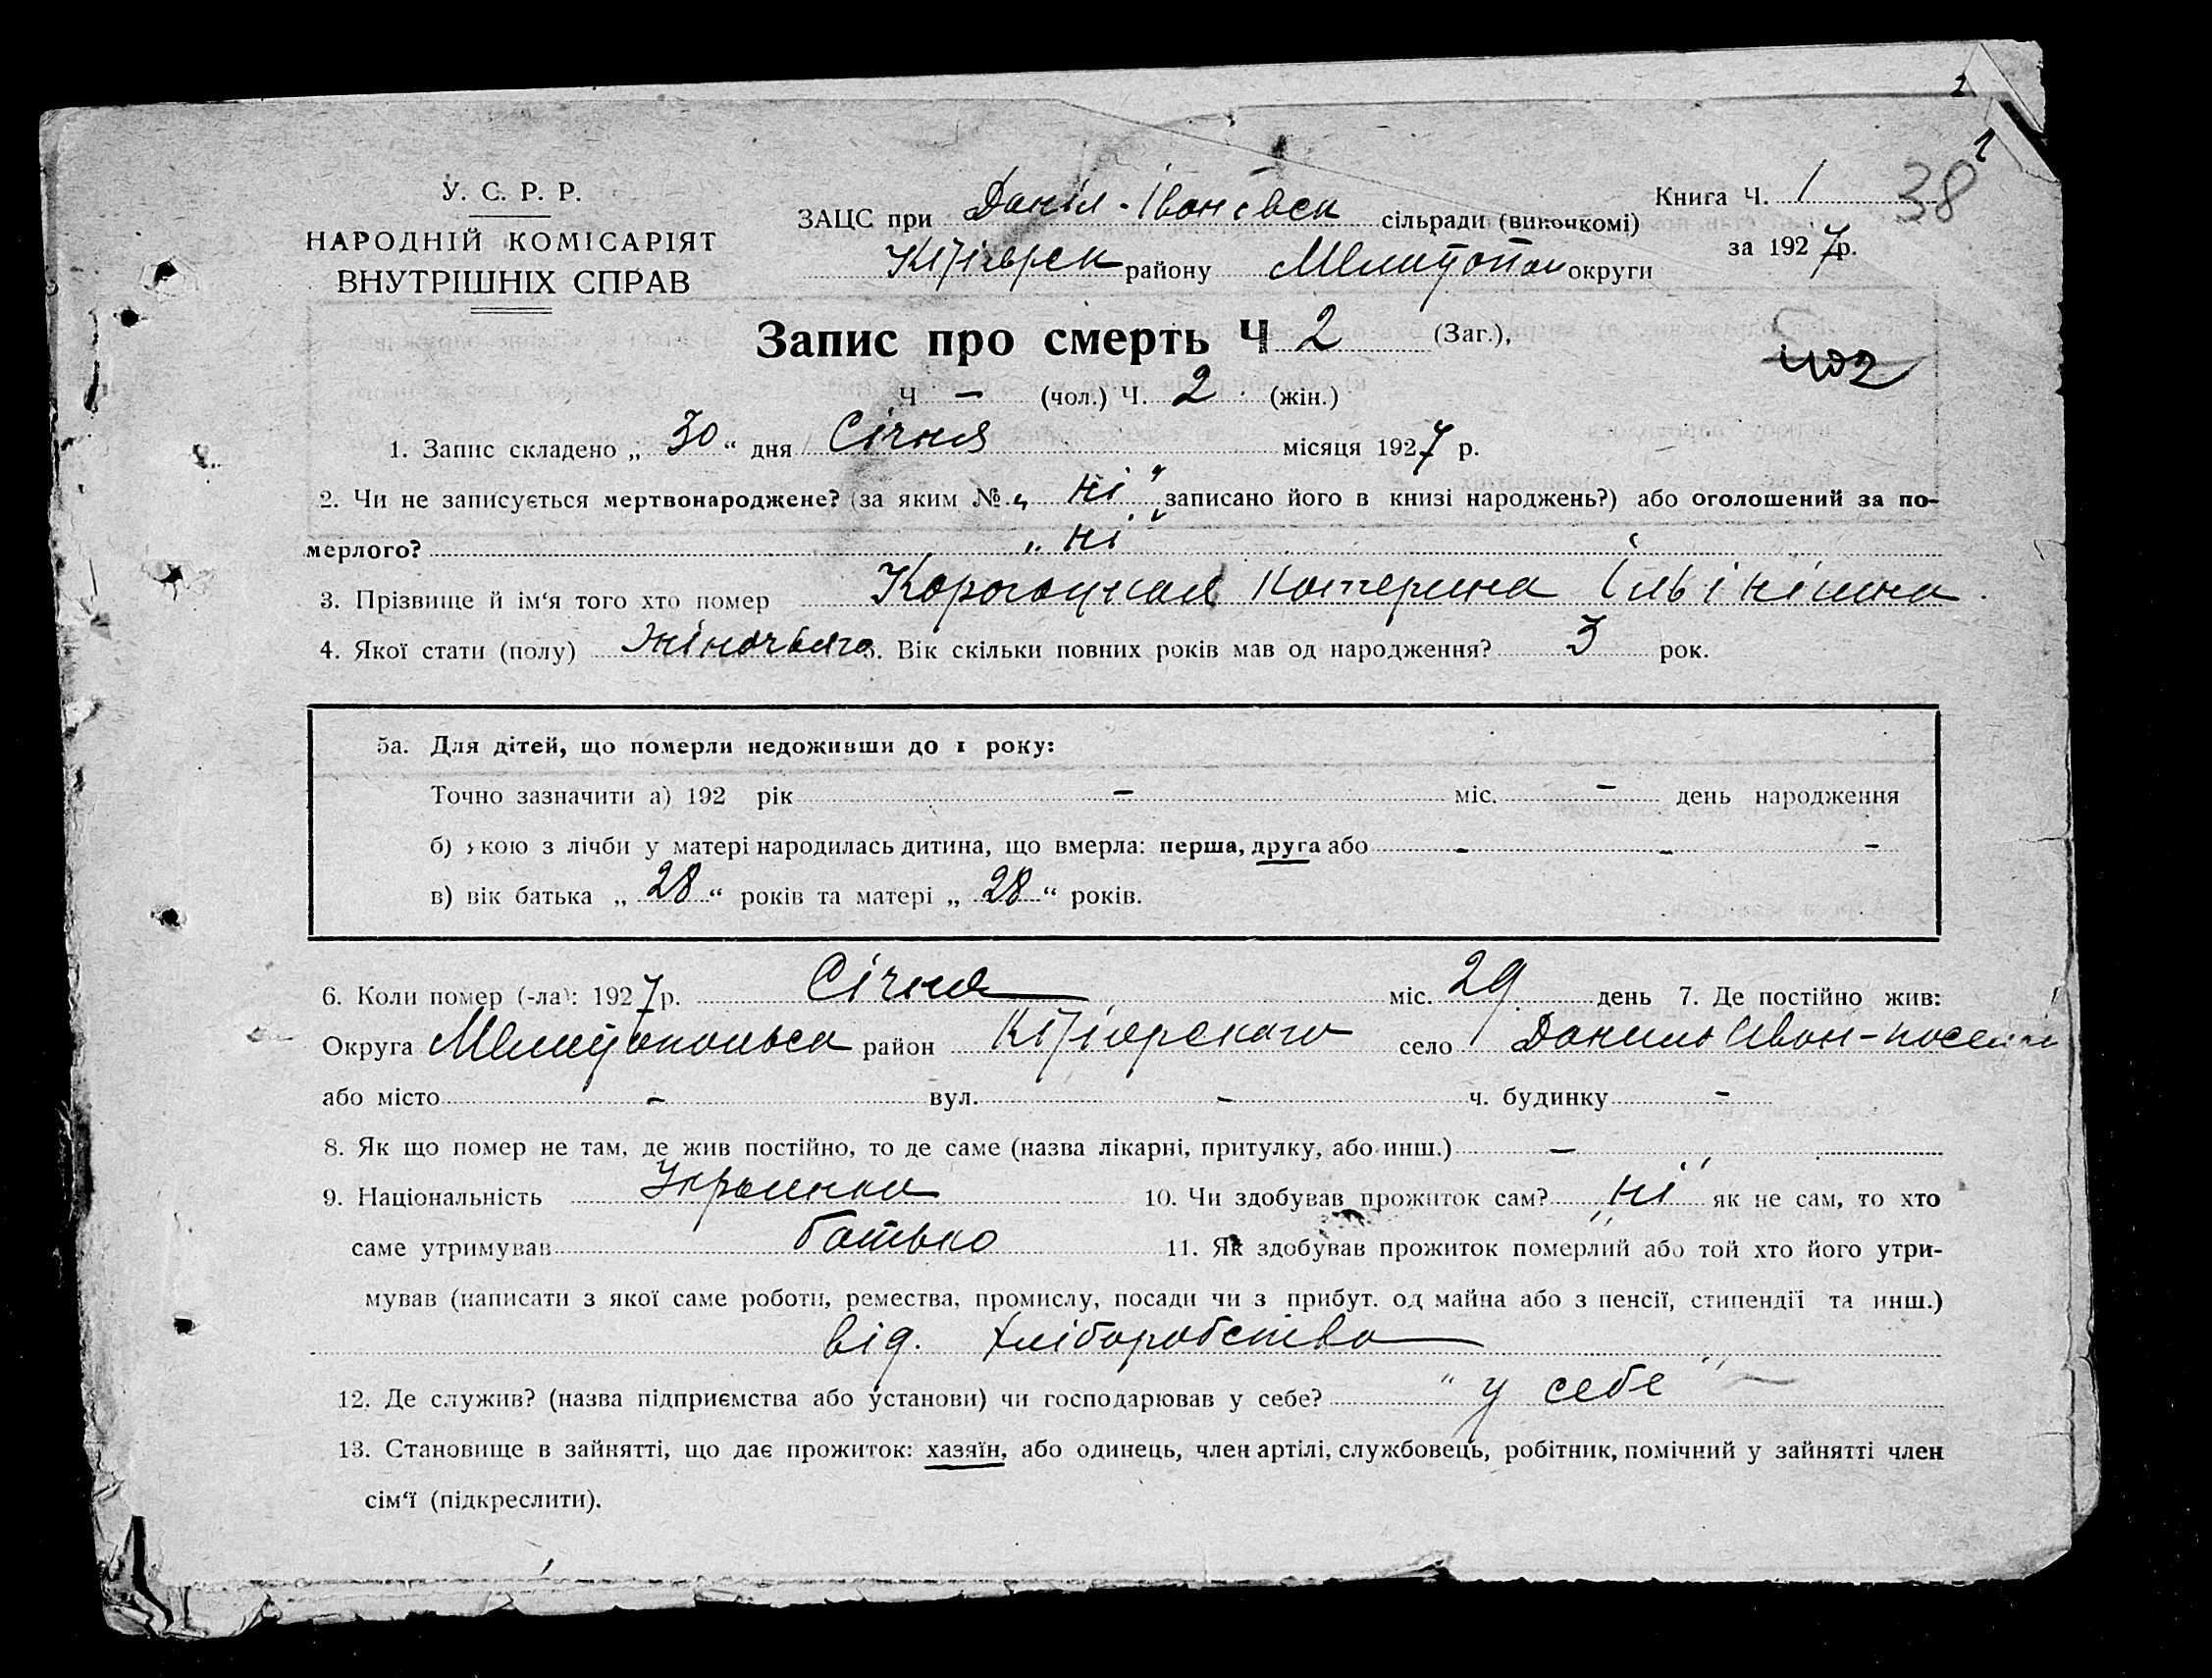 У. С. Р. Р.
НАРОДНІЙ КОМІСАРІЯТ
ВНУТРІШНІХ СПРАВ
ЗАЦС при Даніл-Іванівск сільради (виконкомі)
району Мелитопол округи
Книга Ч. 1 38
за 1927 р.
Запис про смерть Ч 2 (Заг.),
Ч — (чол.) Ч. 2 (жін.)
1. Запис складено „ 30 “ дня Січня місяця 1927 р.
2. Чи не записується мертвонароджене? (за яким № „ ні “ записано його в книзі народжень?) або оголошений за по-
мерлого? „ ні “
3. Прізвище й ім‘я того хто помер Корогоцкая Катерина
4. Якої стати (полу) Жіночьяго 5. Вік скільки повних років мав од народження? 3 рок.
5а. Для дітей, що померли недоживши до 1 року:
Точно зазначити а) 192 рік — міс. — день народження
б) якою з лічби у матері народилась дитина, що вмерла: перша, друга або - - -
в) вік батька „ 28 “ років та матері „ 28 “ років.
6. Коли помер (-ла): 1927 р. Січня міс. 29 день 7. Де постійно жив:
Округа Мелитопольск район село Данило Иван-
або місто — вул. — ч. будинку —
8. Як що помер не там, де жив постійно, то де саме (назва лікарні, притулку, або инш.) —
9. Національність Украинка 10. Чи здобував прожиток сам? „ ні “ як не сам, то хто
саме утримував батько 11. Як здобував прожиток померлий або той хто його утри-
мував (написати з якої саме роботи, ремества, промислу, посади чи з прибут. од майна або з пенсії, стипендії та инш.)
від. хліборобства
12. Де служив? (назва підприємства або установи) чи господарював у себе? „ у себе “
13. Становище в зайнятті, що дає прожиток: хазяїн, або одинець, член артілі, службовець, робітник, помічний у зайнятті член
сім‘ї (підкреслити).